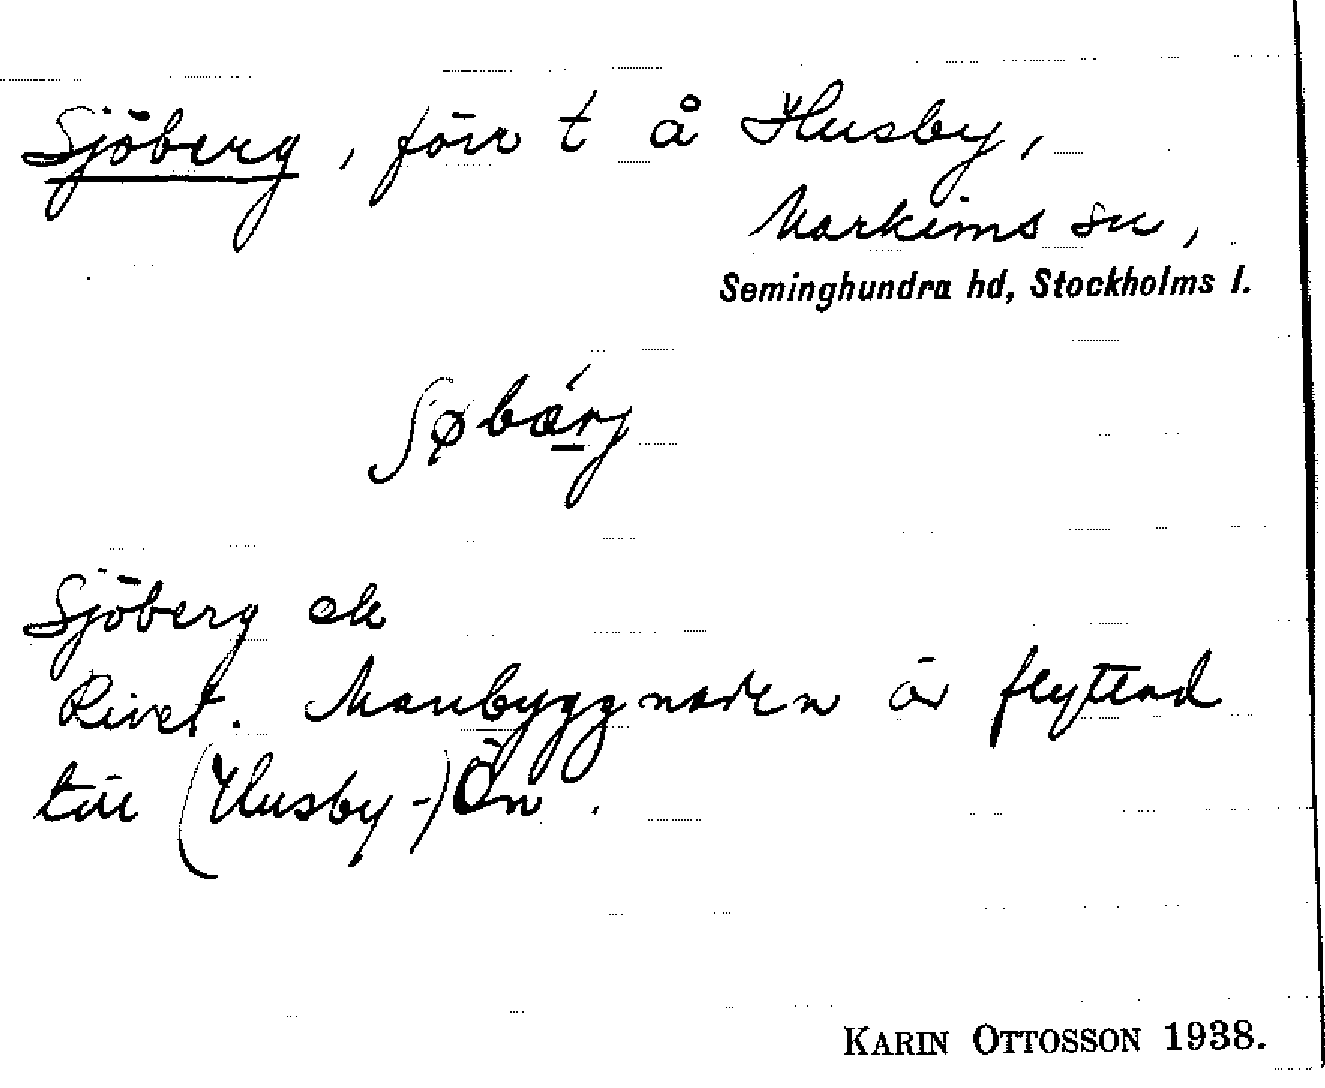 Sjöberg, förr t å Husby,
Markims sn,
Seminghundra hd, Stockholms l.
Sjöberg ek
Rivet. Manbyggnaden är flyttad
till (Husby-)Ön.
KARIN OTTOSSON 1938.